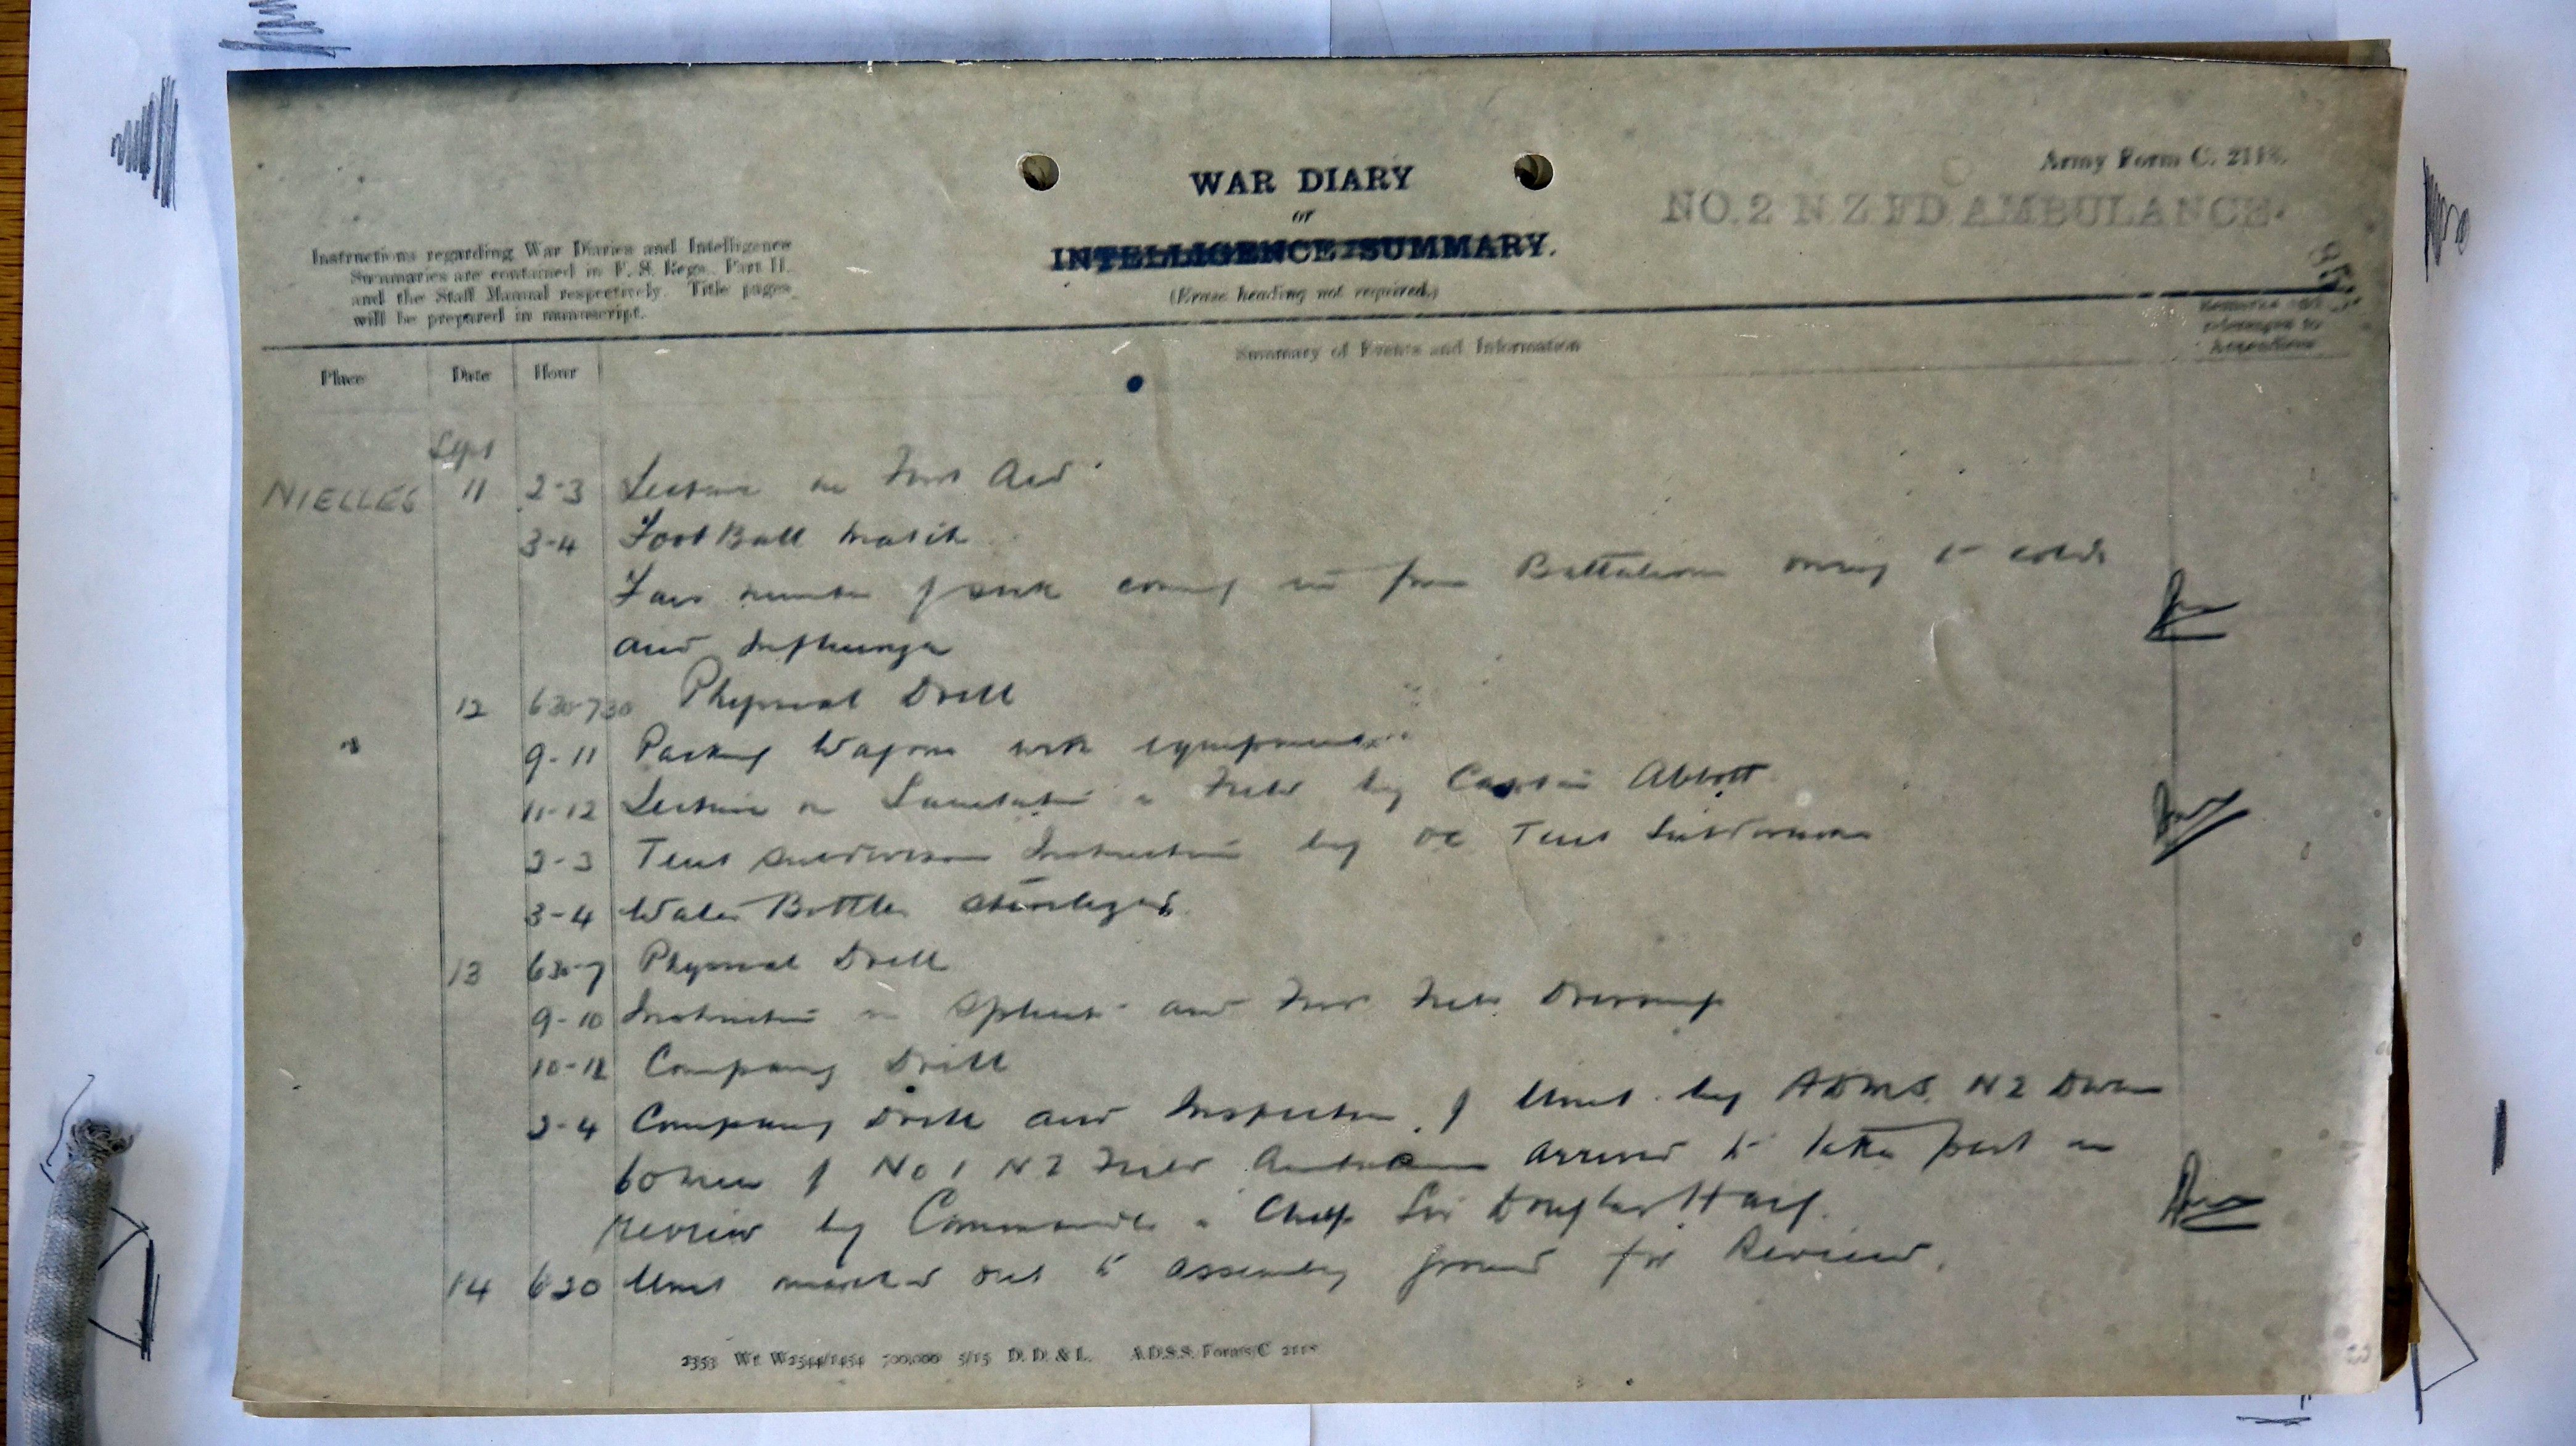 Army Form C. 2118.
WAR DIARY
or
INTELLIGENCE SUMMARY.
(Erase heading not required.)
NO. 2 N Z FD AMBULANCE.
Instructions regarding War Diaries and Intelligence
Summaries are contained in F. S. Regs., Part II.
and the Staff Manual respectively. Title pages
will be prepared in manuscript.
Remarks and
references to
Appendices
Summary of Events and Information
Place Date Hour
Sept
NIELLES 11 2-3 Lecture on First Aid
3-4 Foot Ball match
Fair number of sick coming in from Battalions owing to colds
and Influenza
12 6 30-7 30 Physical Drill
9-11 Packing Wagons with equipment
11-12 Lecture on Sanitation in Field by Captain Abbott
2-3 Tent subdivision Instruction by OC Tent Subdivisions
3-4 Water Bottles sterilized
13 6 30-7 Physical Drill
9-10 Instruction in Splints and First Field Dressings
10-12 Company Drill
2-4 Company Drill and Inspection of Unit by ADMS. NZ Divn
60 men of No 1 NZ Field Ambulance arrived to take part in
review by Commander in Chief Sir Douglas Haig.
14 6 30 Unit marched out to assembly ground for Review.
2353 Wt. W2544/1454 700,000 5/15 D. D. & L. A.D.S.S. Forms/C 2118